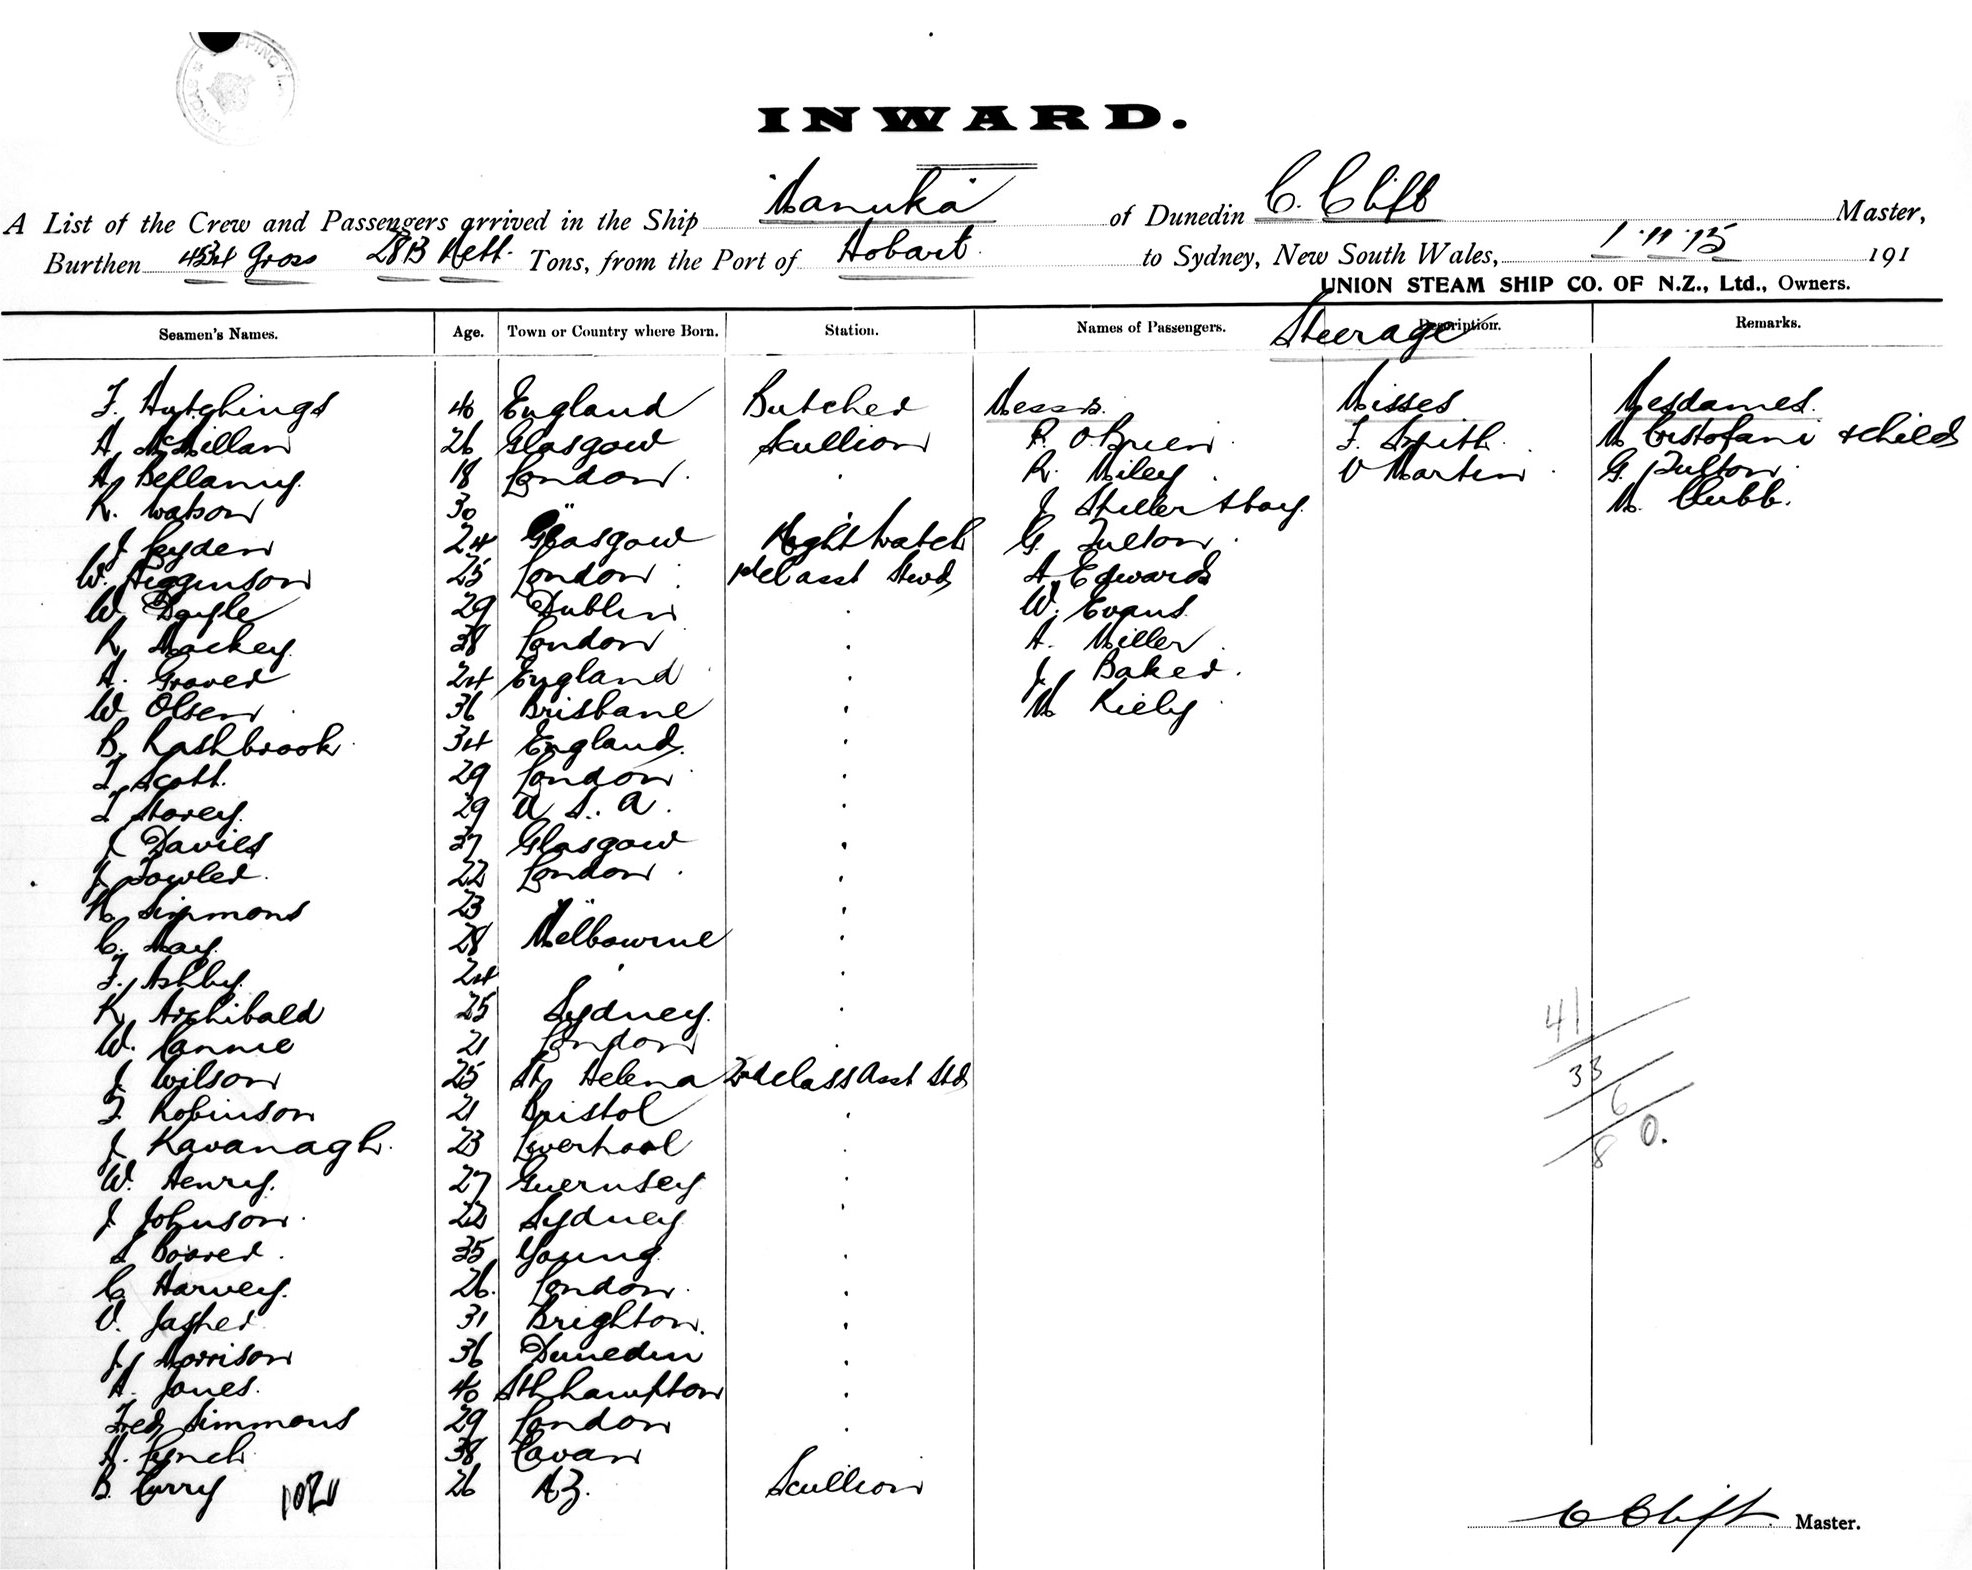 INWARD.
A List of the Crew and Passengers arrived in the Ship "Manuka" of Dunedin C. Clift Master,
Burthen 4534 Gross 2813 Nett. Tons, from the Port of Hobart to Sydney, New South Wales, 1.11.15 191
UNION STEAM SHIP CO. OF N.Z., Ltd., Owners.
Seamen's Names. Age. Town or Country where Born. Station. Names of Passengers. Steerage Description. Remarks.
F. Hutchings 40 England Butcher Messrs. Misses Mesdames.
A. McMillan 26 Glasgow Scullion P. O'Brien F. Smith M Cristofani & Child
A. Bellamy. 18 London. R. Miley V Martin G. Fulton.
R. Watson 30 " J. M. Clubb.
J. Leyden 24 Glasgow Night Watch G. Fulton
W. Higginson 25 London 1st Class Asst Stwd A. Edwards
W. Doyle 29 Dublin W. Evans
R. Mackey. 38 London A. Miller
A. Graver 24 England J. Baker.
W Olsen 36 Brisbane M Kiely
B. Rashbrook 34 England.
T. Scott. 29 London
T Storey. 29 U. S. A.
J. Davies 37 Glasgow
J. Fowler. 22 London.
R. Simmons 23 "
C. May. 28 Melbourne
F. Ashby. 24
R. Archibald 25 Sydney.
W. Rannie 21 London
J. Wilson 25 St. Helena 2nd Class Asst Std
F. Robinson 21 Bristol
J. Kavanagh. 23 Liverpool
W. Henry. 27 Guernsey
J. Johnson. 22 Sydney
S Boarer. 35 Young
C. Harvey. 26. London.
V. Jasper. 31 Brighton.
J. Morrison 36 Dunedin
A. Jones. 40 Sthhampton
Fred Simmons 29 London
A. Lynch 38 Cavan
B. Curry 26 N.Z. Scullion
41
33
6
8 0.
C Clift. Master.